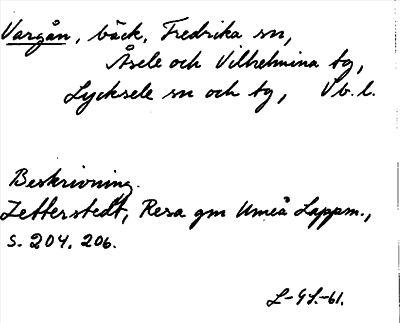 Vargån, bäck, Fredrika sn,
Åsele och Vilhelmina tg,
Lycksele sn och tg, Vb. l.
Beskrivning.
Zetterstedt, Resa gm Umeå Lappm.,
s. 204, 206.